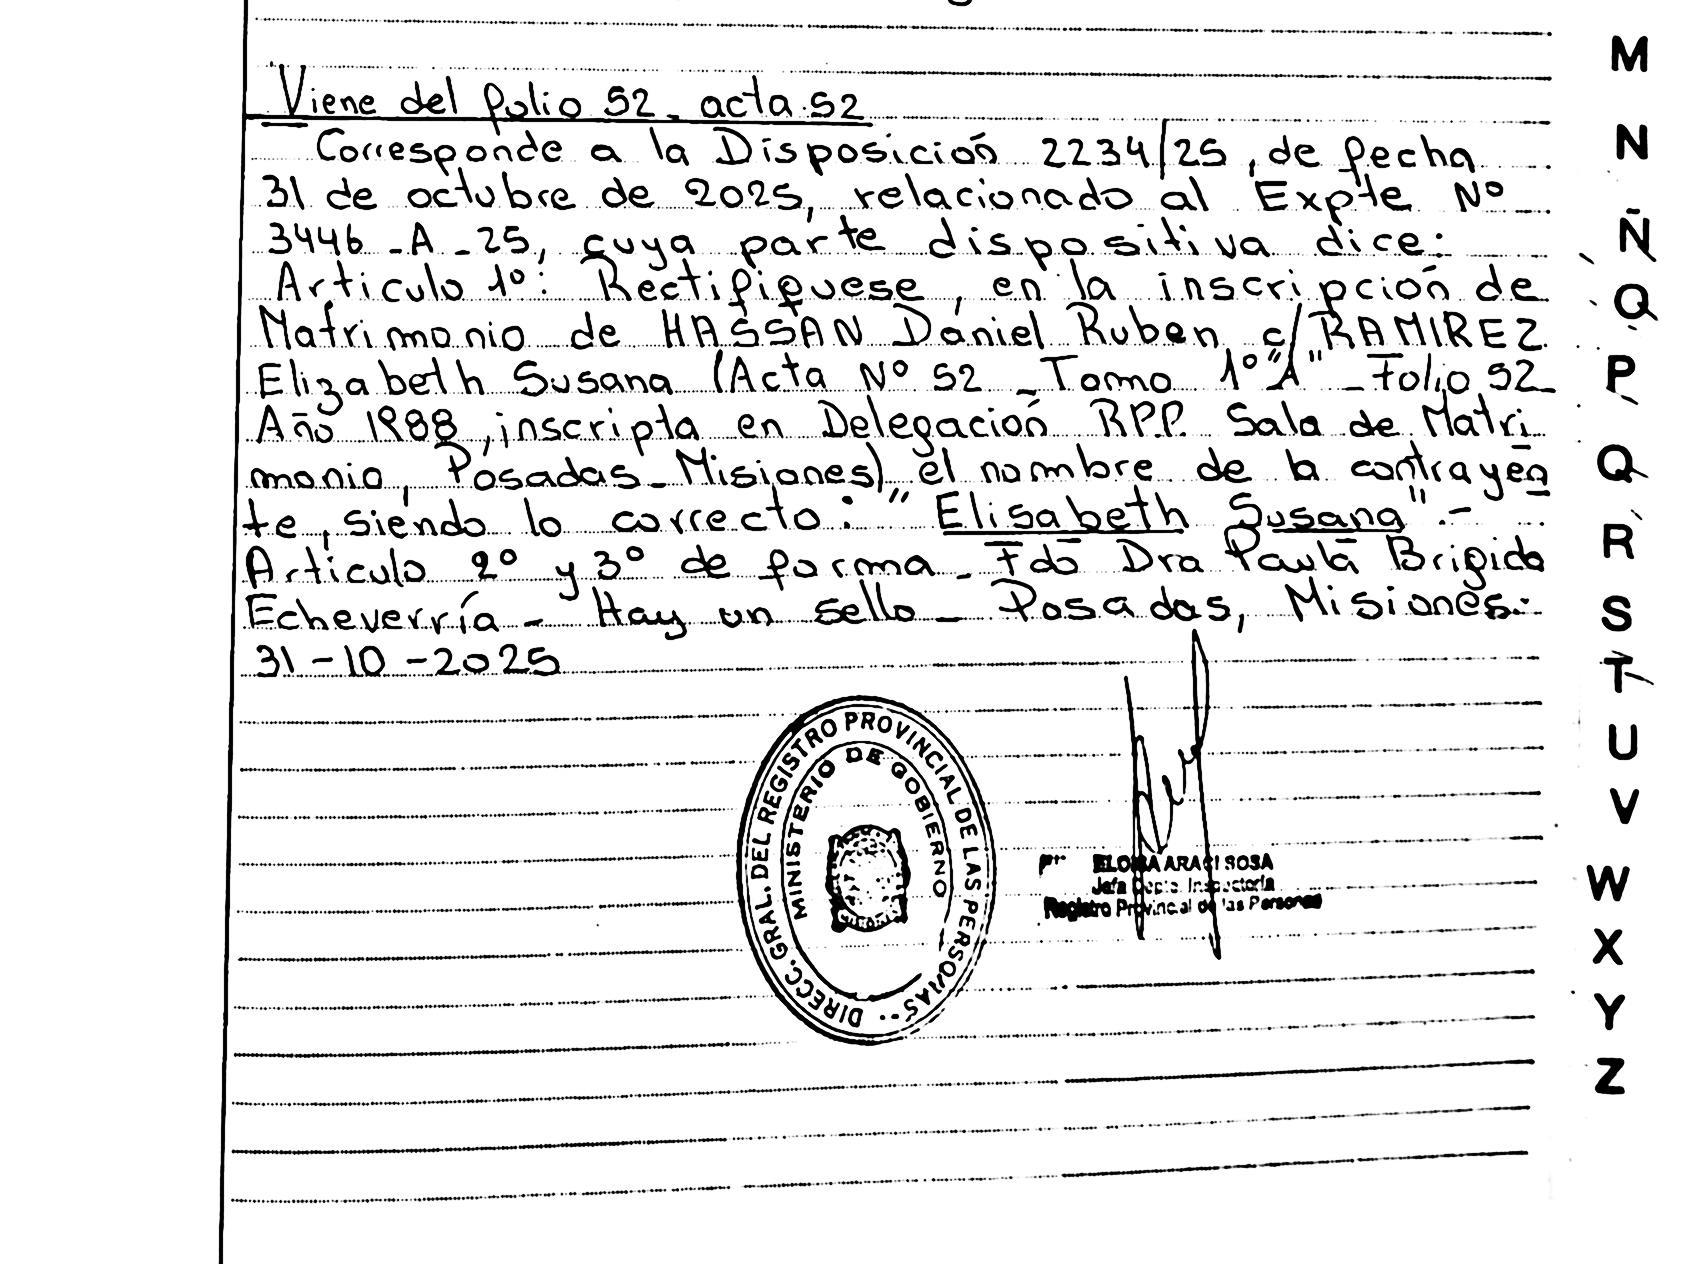 Viene del folio 52 - acta 52
Corresponde a la Disposición 2234/25, de fecha
31 de octubre de 2025, relacionado al Expte Nº
3446 - A - 25, cuya parte dispositiva dice:
Articulo 1º: Rectifiquese, en la inscripción de
Matrimonio de HASSAN Daniel Ruben c/ RAMIREZ
Elizabeth Susana (Acta Nº 52 - Tomo 1º "A" - Folio 52 -
Año 1988, inscripta en Delegación R.P.P. Sala de Matri
monio, Posadas - Misiones) el nombre de la contrayen
te, siendo lo correcto: "Elisabeth Susana".-
Articulo 2º y 3º de forma - Fdo Dra Paula Brigida
Echeverría - Hay un sello - Posadas, Misiones.-
31-10-2025
DIRECC. GRAL. DEL REGISTRO PROVINCIAL DE LAS PERSONAS
MINISTERIO DE GOBIERNO
ELOISA ARACI SOSA
Jefa Depto. Inspectoría
Registro Provincial de las Personas
M
N
Ñ
O
P
Q
R
S
T
U
V
W
X
Y
Z